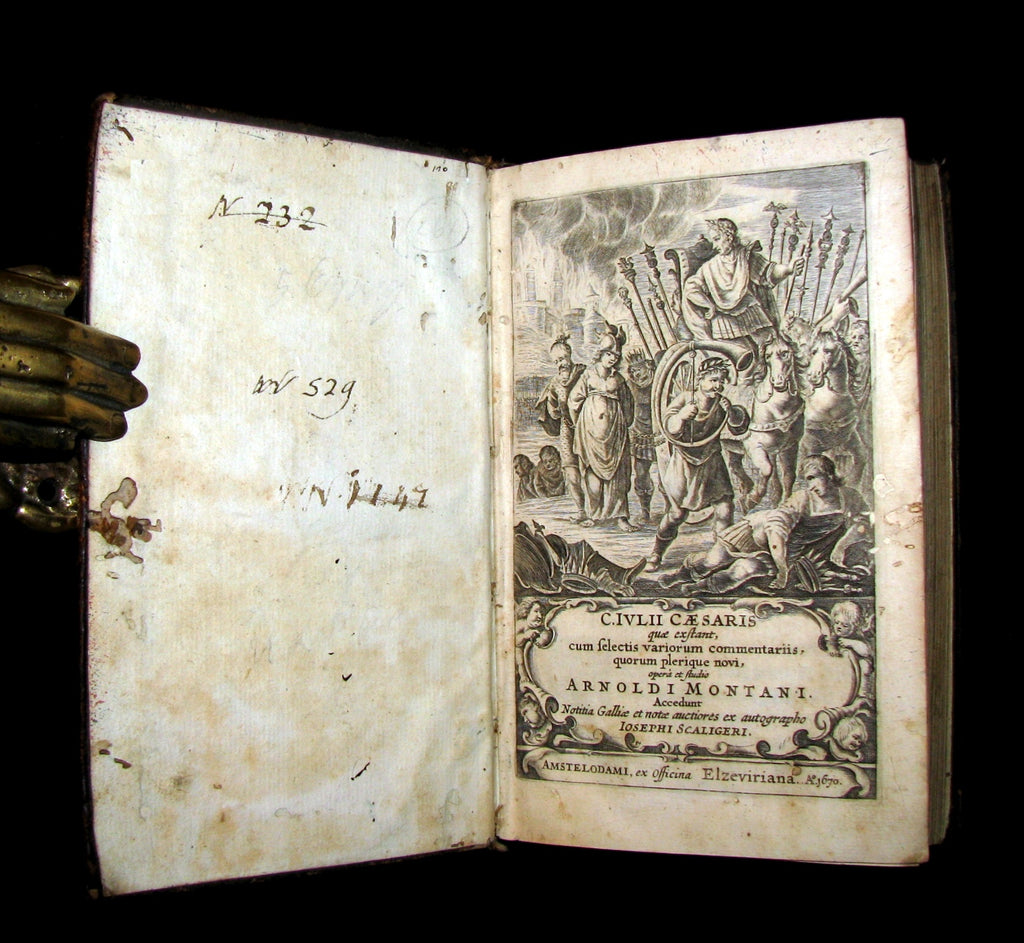 N 232
N 529
N 1147
C. IVLII CÆSARIS
quæ exſtant,
cum ſelectis variorum commentariis,
quorum plerique novi,
operâ et ſtudio
ARNOLDI MONTANI.
Accedunt
Notitia Galliæ et notæ auctiores ex autographo
IOSEPHI SCALIGERI.
AMSTELODAMI, ex Officina Elzeviriana. Aº. 1670.